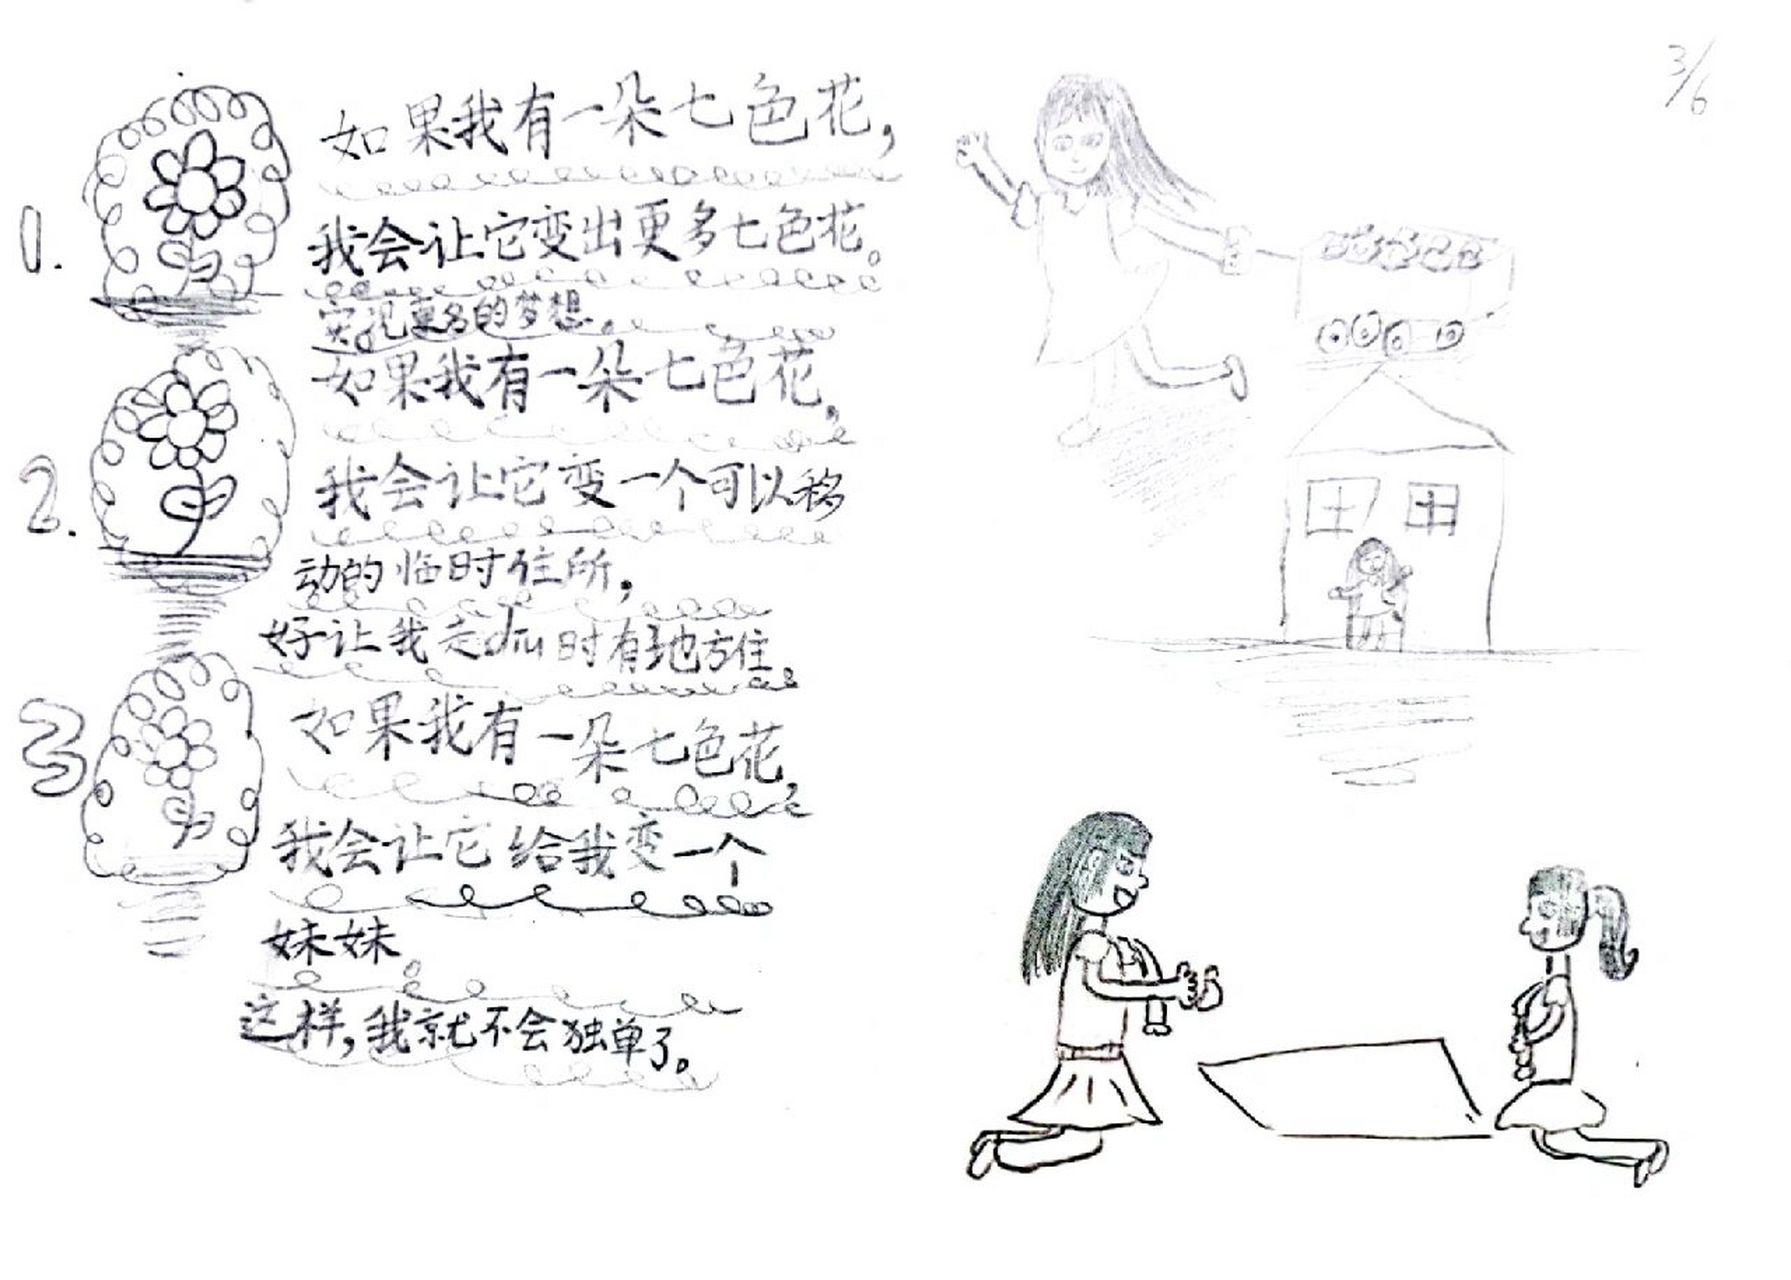 3/6
1.
如果我有一朵七色花，
我会让它变出更多七色花。
实现更多的梦想。
2.
如果我有一朵七色花，
我会让它变一个可以移
动的临时住所，
好让我走diu时有地方住。
3
如果我有一朵七色花，
我会让它给我变一个
妹妹。
这样，我就不会独单了。